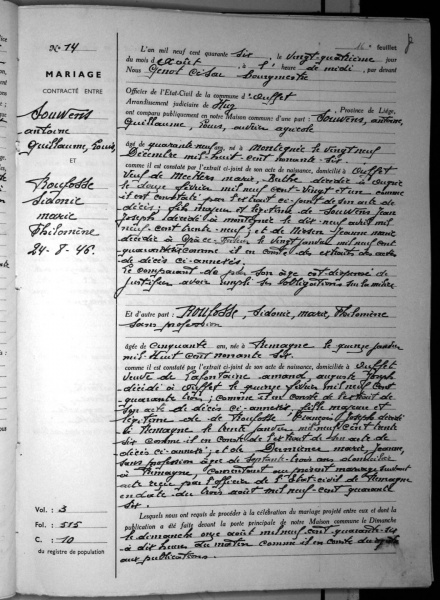 N° 14
MARIAGE
CONTRACTÉ ENTRE
Souwens
antoine
Guillaume, Louis
ET
Roufosse
Sidonie
marie
Philomène
24-8-46.
Vol. : 3
Fol. : 515
C. : 10
du registre de population
feuillet
L'an mil neuf cent quarante six, le vingt-quatrième jour
du mois d'août, à l'heure de midi, par devant
Nous Bourgmestre
Officier de l'Etat-Civil de la commune d'Ouffet
Arrondissement judiciaire de Huy Province de Liége,
ont comparu publiquement en notre Maison commune d'une part : Souwens, antoine,
Guillaume, Louis, ouvrier agricole
âgé de quarante neuf ans, né à le vingt neuf
Décembre mil huit cent nonante six
comme il est constaté par l'extrait ci-joint de son acte de naissance, domicilié à Ouffet
Veuf de marie, décédée à
le douze février mil neuf cent vingt et un comme
il est constaté par l'extrait ci-joint de son acte de
décès ; fils majeur et légitime de Souwens Jean
Joseph décédé à le dix-neuf avril mil
neuf cent trente neuf ; et de Jeanne marie
décédée à le vingt janvier mil neuf cent
quarante comme il en conste de extraits des actes
de décès ci-annexés.
Le comparant de par son âge est dispensé de
justifier avoir rempli ses obligations sur la milice
Et d'autre part : Roufosse, Sidonie, marie, Philomène
sans profession
âgée de cinquante ans, née à le quinze janvier
mil huit cent nonante six
comme il est constaté par l'extrait ci-joint de son acte de naissance, domiciliée à Ouffet
Veuve de Lafontaine amand, auguste Joseph
décédé à Ouffet le quinze février mil neuf cent
quarante trois ; comme il en conste de l'extrait de
son acte de décès ci-annexé, fille majeure et
légitime de Roufosse François Joseph décédé
à le trente janvier mil neuf cent trente
six comme il en conste de l'extrait de son acte de
décès ci-annexé ; et de marie, Jeanne,
sans profession âgée de septante-trois ans domiciliée
à consentant au présent mariage suivant
acte reçu par l'officier de l'état-civil de
en date du trois août mil neuf cent quarante
six.
Lesquels nous ont requis de procéder à la célébration du mariage projeté entre eux et dont la
publication a été faite devant la porte principale de notre Maison commune le Dimanche
le dimanche onze août mil neuf cent quarante-six
à dix heures du matin comme il en conste du registre
aux publications.